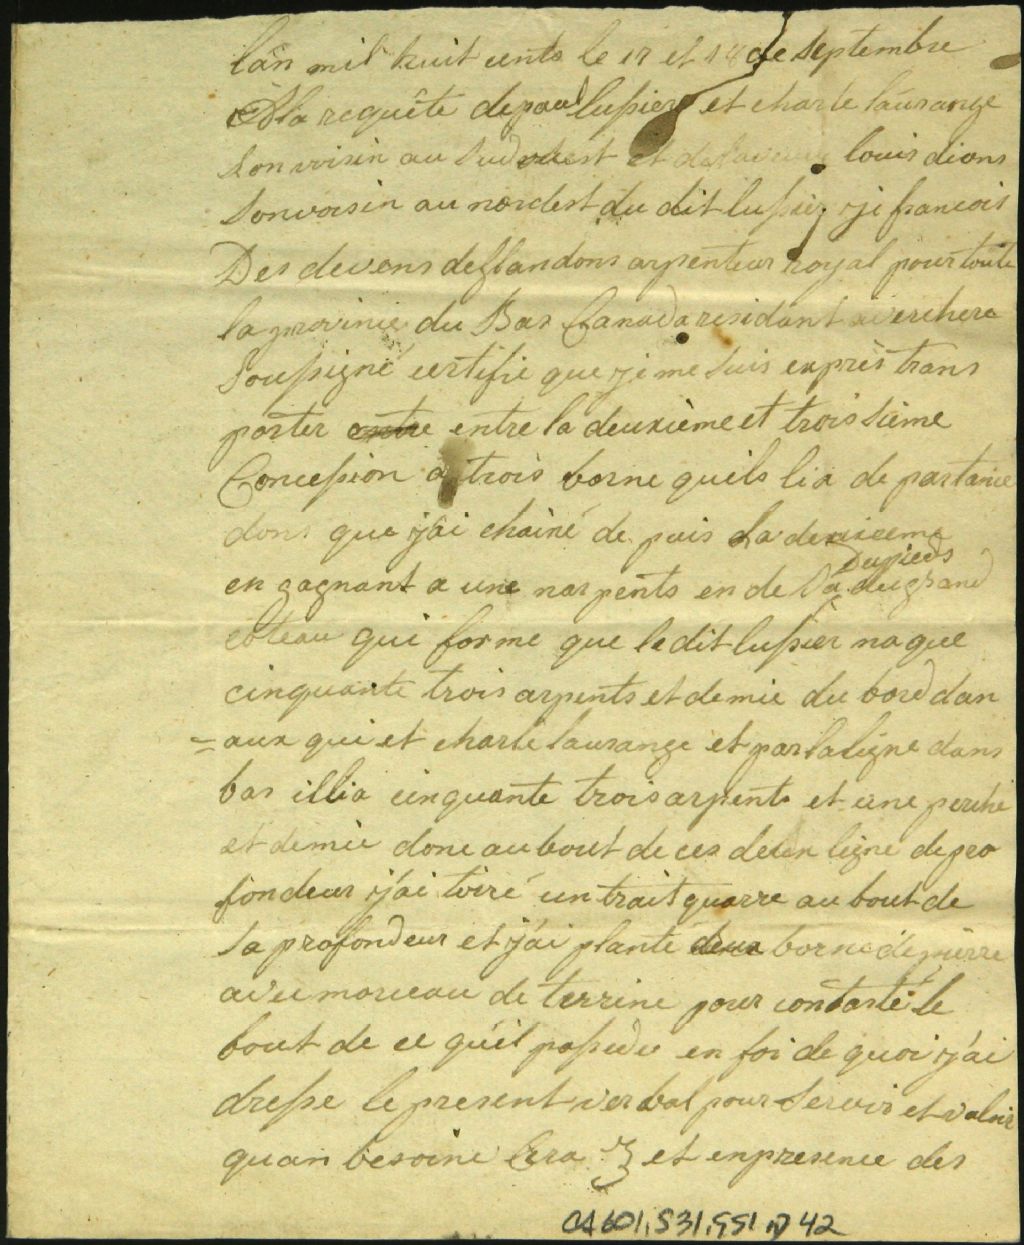 lân mil huit cents le 17 et 18 de septembre
A la requête de paul lussier et charle laurange
son voisin au sudouest et louis dions
sonvoisin au nordest du dit lussier ji francois
Des devens desglandons arpenteur royal pour toute
la province du Bas Canada residant a verchere
soussigné certifie que je me suis exprès trans
porter entre entre la deuxième et troissième
Concession a trois borne quils lia de partance
dont que j'ai chainé de puis la deuxieme
en gagnant a une narpents en de Sa du pieds du grand
coteau qui forme que le dit lussier naque
cinquante trois arpents et demie du bord dan
= aux qui et charle laurange et par la ligne dans
bas illia cinquante trois arpents et une perche
et demie donc au bout de ces deux ligne de pro
fondeur j'ai tiré un trait quarre au bout de
sa profondeur et j'ai planté deux borne de pierre
avec morceau de terrine pour contasté le
bout de ce quil possede en foi de quoi j'ai
dresse le present verbal pour servir et valoir
quan besoine sera et enpresence des
CA601,S31,SS1,D42